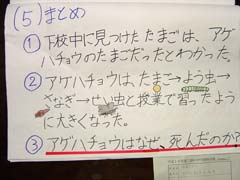 (5)まとめ
①下校中に見つけたたまごは、アゲ
ハチョウのたまごだったとわかった。
②アゲハチョウは、たまご→よう虫→
さなぎ→せい虫と授業で習ったよう
に大きくなった。
③アゲハチョウはなぜ、死んだのか?